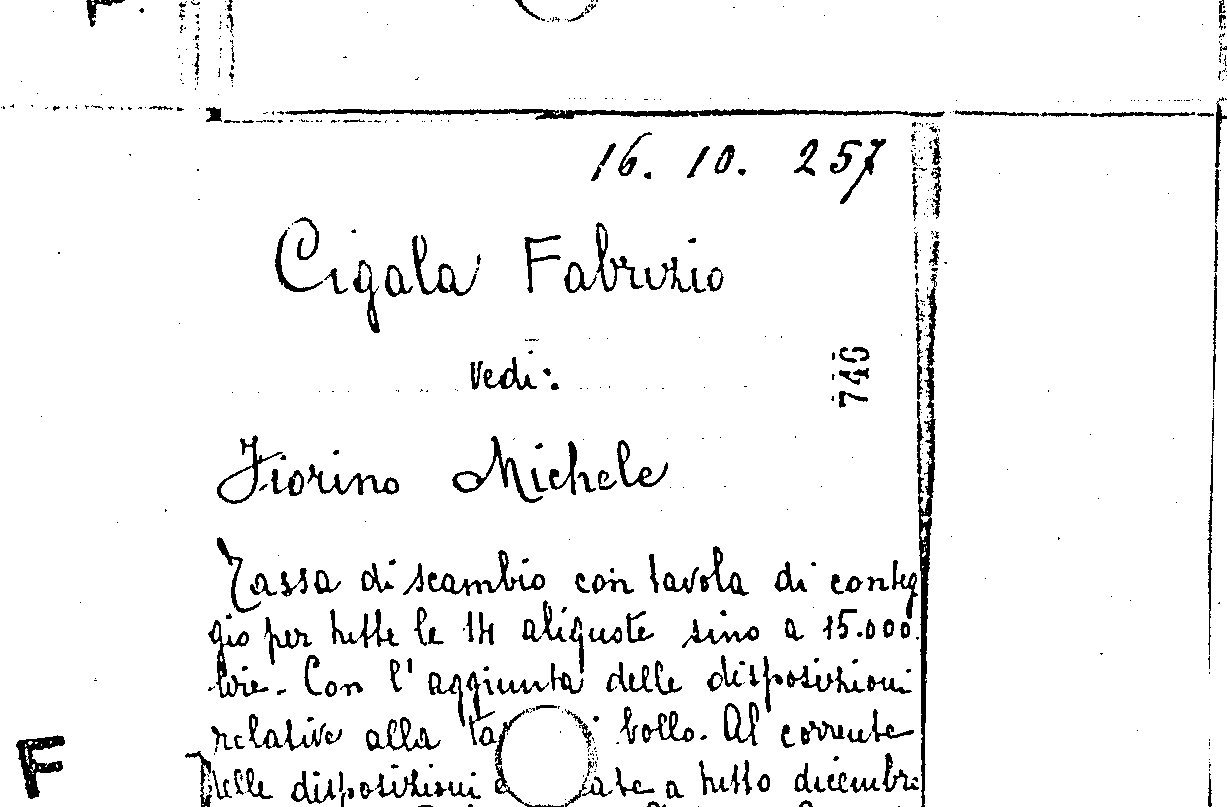 F.
16. 10. 257
Cigala Fabrizio
Vedi:
746
Fiorino Michele
Tassa di scambio con tavola di conteg
gio per tutte le 14 aliquote sino a 15.000
lire. Con l'aggiunta delle disposizioni
relative alla bollo. Al corrente
delle disposizioni a tutto dicembre
F